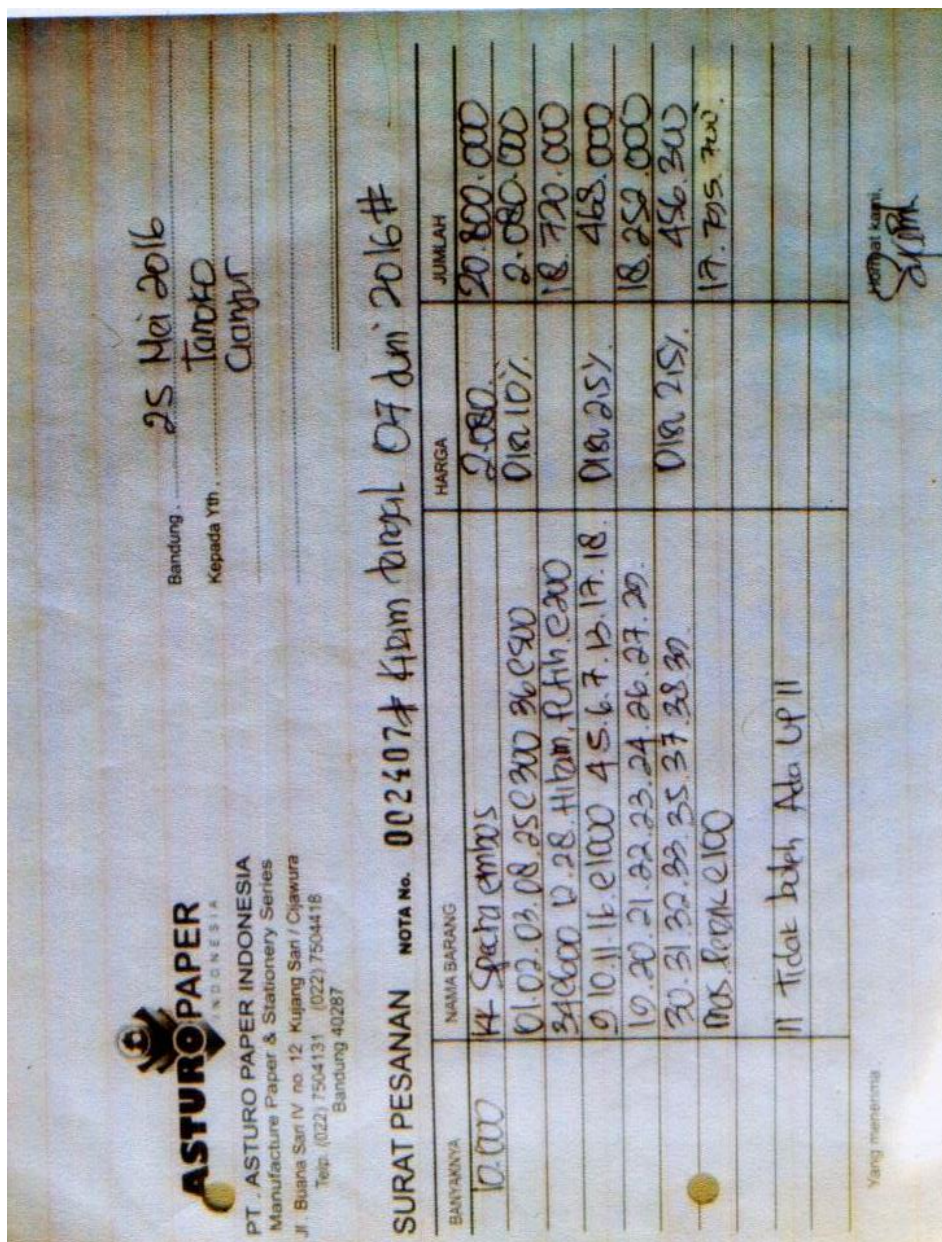 ASTURO PAPER
INDONESIA
PT. ASTURO PAPER INDONESIA
Manufacture Paper & Stationery Series
Jl. Buana Sari IV no. 12 Kujang Sari / Cijawura
Telp. (022) 7504131 (022) 7504418
Bandung 40287
Bandung, 25 Mei 2016
Kepada Yth, Tanoko
Cianjur
SURAT PESANAN NOTA No. 002407 # Kirim tanggal 07 Juni 2016 #
BANYAKNYA NAMA BARANG HARGA JUMLAH
10.000 Spectra embos 2.080. 20.800.000
01.02.03.08.25 @300 36 @500 Disc 10%. 2.080.000
34@600 12.28. Hitam, Putih @200 18.720.000
9.10.11.16. @1000 4.5.6.7.13.17.18 Disc 2,5% 468.000
19.20.21.22.23.24.26.27.29. 18.252.000
30.31.32.33.35.37.38.39. Disc 2,5%. 456.300
Mas. Perak @100 17.795.700.
!!! Tidak boleh Ada UP !!
Yang menerima Hormat kami,